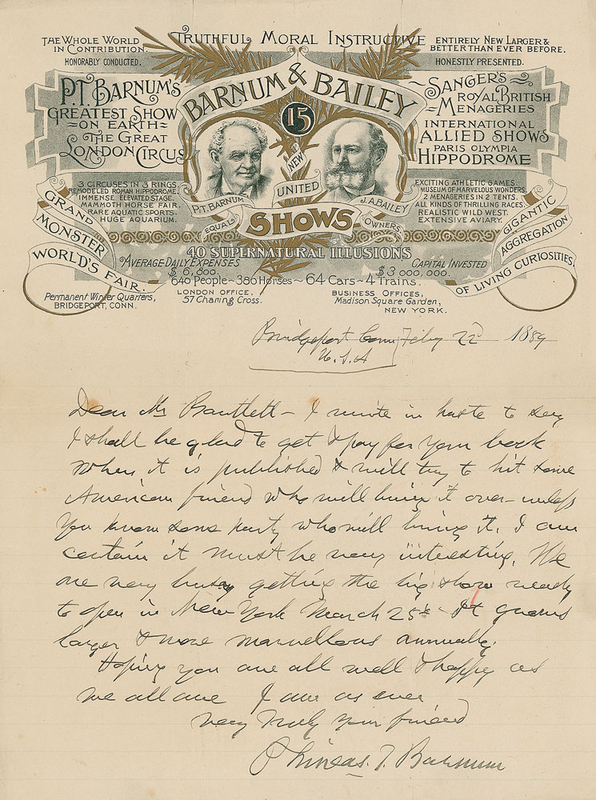 THE WHOLE WORLD
IN CONTRIBUTION.
HONORABLY CONDUCTED.
TRUTHFUL MORAL INSTRUCTIVE
ENTIRELY NEW LARGER &
BETTER THAN EVER BEFORE.
HONESTLY PRESENTED.
P.T. BARNUM'S
GREATEST SHOW
ON EARTH
THE GREAT
LONDON CIRCUS
BARNUM & BAILEY
15
NEW
UNITED
P.T. BARNUM
J.A. BAILEY
EQUALS
OWNERS
SHOWS
SANGER'S
ROYAL BRITISH
MENAGERIES
INTERNATIONAL
ALLIED SHOWS
PARIS OLYMPIA
HIPPODROME
3 CIRCUSES IN 3 RINGS.
REMODELED ROMAN HIPPODROME.
IMMENSE ELEVATED STAGE.
MAMMOTH HORSE FAIR.
RARE AQUATIC SPORTS.
HUGE AQUARIUM.
EXCITING ATHLETIC GAMES
MUSEUM OF MARVELOUS WONDERS
2 MENAGERIES IN 2 TENTS.
ALL KINDS OF THRILLING RACES
REALISTIC WILD WEST.
EXTENSIVE AVIARY.
GRAND
MONSTER
WORLD'S FAIR.
GIGANTIC
AGGREGATION
OF LIVING CURIOSITIES
40 SUPERNATURAL ILLUSIONS
AVERAGE DAILY EXPENSES
$6,800.
CAPITAL INVESTED
$3,000,000.
640 PEOPLE~380 HORSES~64 CARS~4 TRAINS.
Permanent Winter Quarters,
BRIDGEPORT, CONN.
LONDON OFFICE.
57 Charing Cross.
BUSINESS OFFICES,
Madison Square Garden,
NEW YORK.
Bridgeport Conn Feby 22d 1889
U.S.A
Dear Mr Bartlett – I write in haste to say
I shall be glad to get & pay for your book
when it is published & will try to hit some
American friend who will bring it over – unless
you know some party who will bring it. I am
certain it must be very interesting. We
are very busy getting the big show ready
to open in New York March 25th – It grows
larger & more marvellous annually.
Hoping you are all well & happy as
we all are I am as ever
very truly your friend
Phineas. T. Barnum